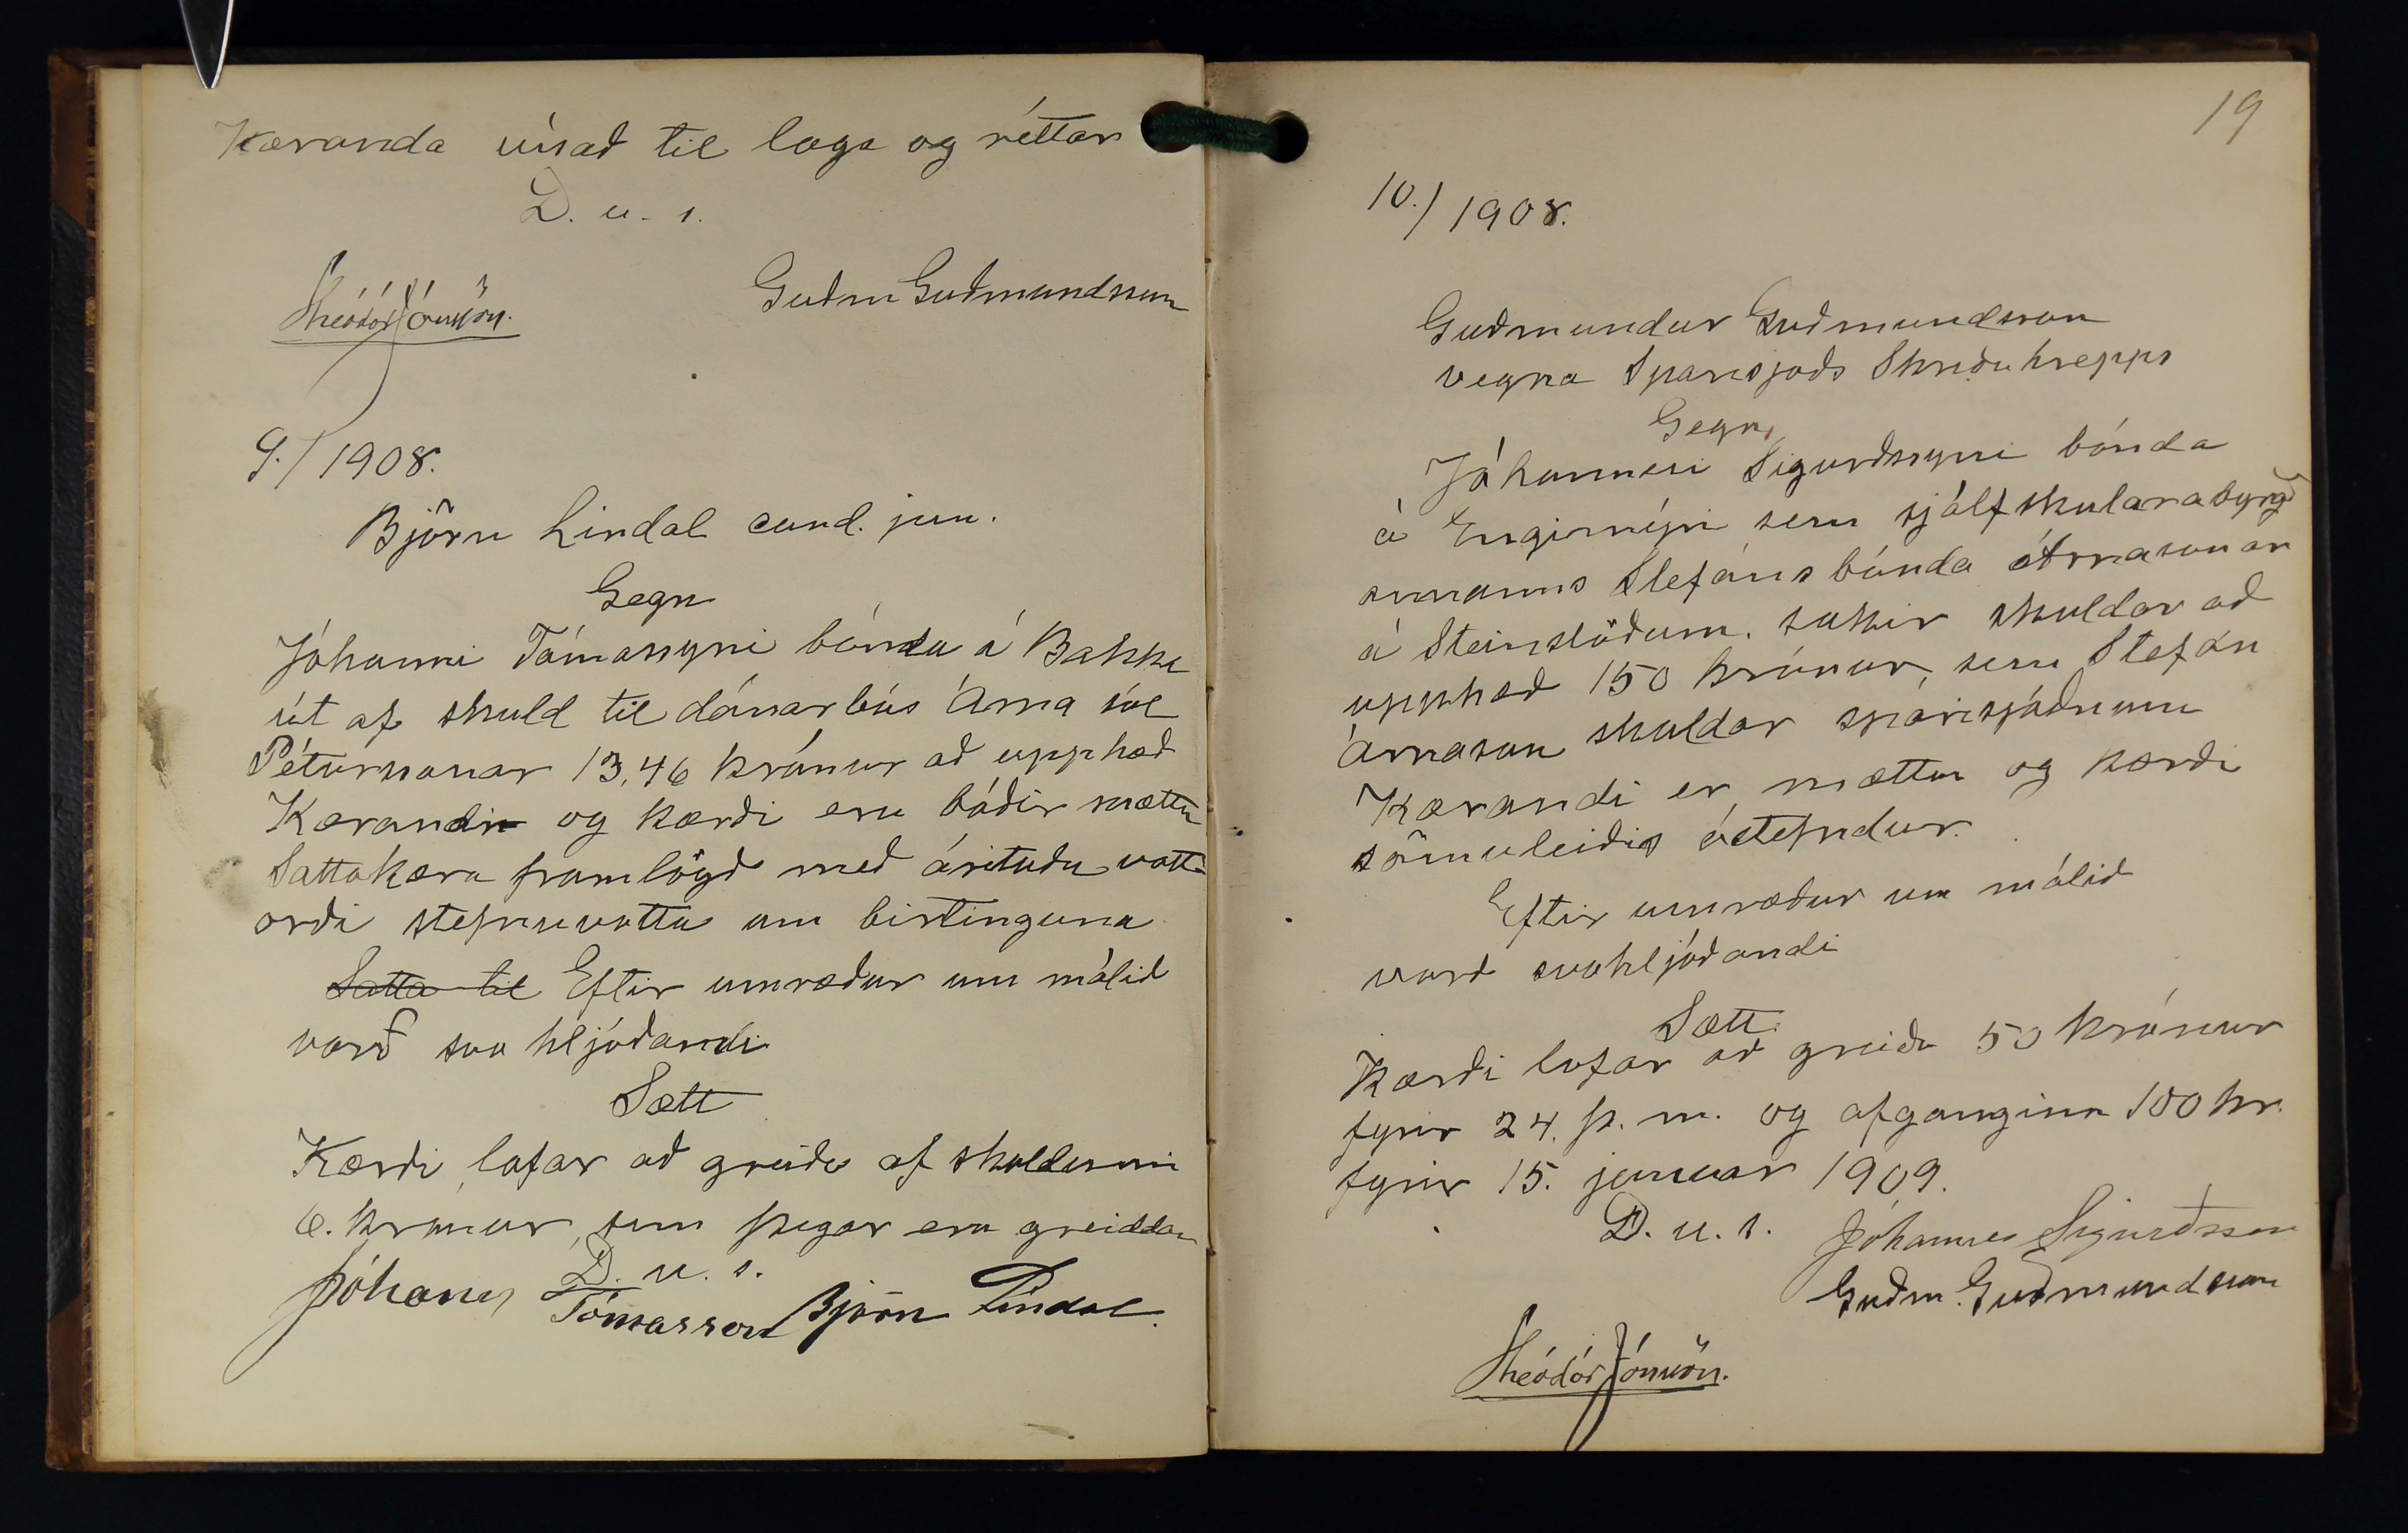 Kæranda vísað til laga og réttar
D. u. s.
Guðm Guðmundsson
Theódór Jónsson.
9./1908.
Björn Líndal cand. jur.
Gegn
Jóhanni Tómassyni bónda á Bakka
út af skuld til dánarbús Árna sál
Péturssonar 13,46 krónur að upphæð
Kærandi og kærði eru báðir mættir
Sáttakæra framlögð með árituðu vott-
orði stefnuvotta um birtinguna
Sátta til Eftir umræður um málið
varð svo hljóðandi
Sætt
Kærði lofar að greiða af skuldinni
6. krónur, sem þegar eru greiddar
D. u. s.
Jóhann Tómasson Björn Líndal.
19
10./1908.
Guðmundur Guðmundsson
vegna Sparisjóðs Skriðuhrepps
Gegn
Jóhannesi Sigurðssyni bónda
á Engimýri sem sjálfskuldarabyrgð
armanns Stefáns bónda Árnasonar
á Steinstöðum, sakir skuldar að
upphæð 150 krónur, sem Stefán
Árnason skuldar sparisjóðnum
Kærandi er mættur og kærði
sömuleiðis óstefndur.
Eftir umræður um málið
varð svohljóðandi
Sætt.
Kærði lofar að greiða 50 krónur
fyrir 24. þ. m. og afganginn 100 kr.
fyrir 15. januar 1909.
D. u. s.
Jóhannes Sigurðsson
Guðm. Guðmundsson
Theódór Jónsson.